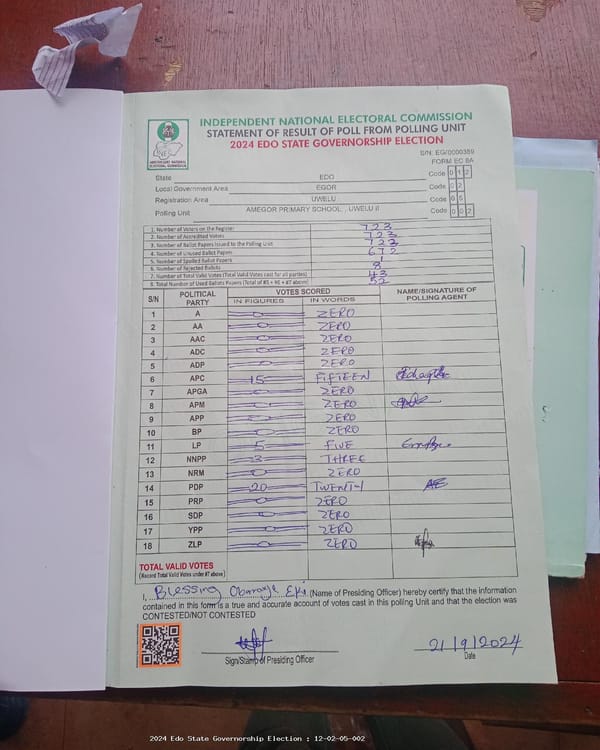 INDEPENDENT NATIONAL ELECTORAL COMMISSION
STATEMENT OF RESULT OF POLL FROM POLLING UNIT
2024 EDO STATE GOVERNORSHIP ELECTION
INDEPENDENT NATIONAL ELECTORAL COMMISSION
S/N: EG/0000389
FORM EC 8A
State EDO Code 0 1 2
Local Government Area EGOR Code 0 2
Registration Area UWELU Code 0 5
Polling Unit AMEGOR PRIMARY SCHOOL, , UWELU II Code 0 0 2
1. Number of Voters on the Register 723
2. Number of Accredited Voters 723
3. Number of Ballot Papers Issued to the Polling Unit 723
4. Number of Unused Ballot Papers 672
5. Number of Spoiled Ballot Papers 1
6. Number of Rejected Ballots 8
7. Number of Total Valid Votes (Total Valid Votes cast for all parties) 43
8. Total Number of Used Ballots Papers (Total of #5 + #6 + #7 above) 52
S/N POLITICAL PARTY VOTES SCORED NAME/SIGNATURE OF POLLING AGENT
IN FIGURES IN WORDS
1 A 0 ZERO
2 AA 0 ZERO
3 AAC 0 ZERO
4 ADC 0 ZERO
5 ADP 0 ZERO
6 APC 15 FIFTEEN
7 APGA 0 ZERO
8 APM 0 ZERO
9 APP 0 ZERO
10 BP 0 ZERO
11 LP 5 FIVE
12 NNPP 3 THREE
13 NRM 0 ZERO
14 PDP 20 TWENTY
15 PRP 0 ZERO
16 SDP 0 ZERO
17 YPP 0 ZERO
18 ZLP 0 ZERO
TOTAL VALID VOTES
(Record Total Valid Votes under #7 above)
I, Blessing (Name of Presiding Officer) hereby certify that the information
contained in this form is a true and accurate account of votes cast in this polling Unit and that the election was
CONTESTED/NOT CONTESTED
21/9/2024
Sign/Stamp of Presiding Officer Date
2024 Edo State Governorship Election : 12-02-05-002